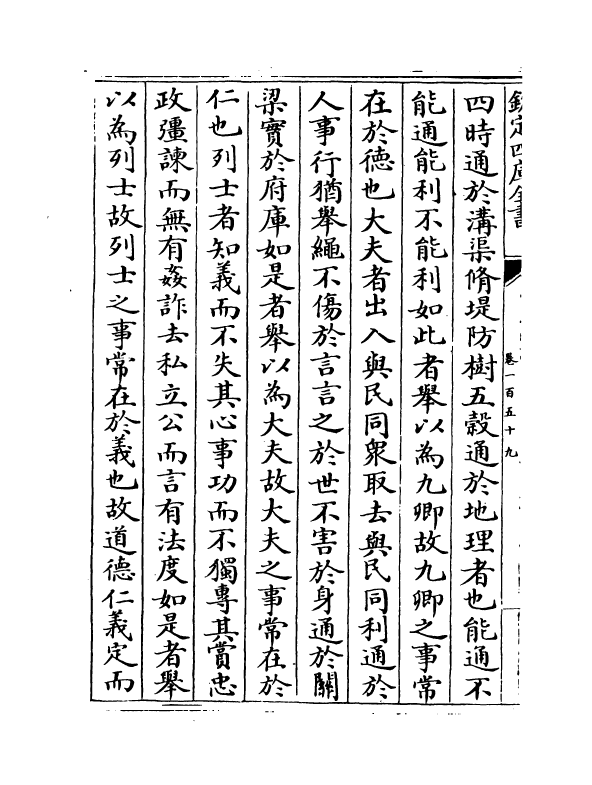 欽定四庫全書
卷一百五十九
四時通於溝渠脩堤防樹五穀通於地理者也能通不
能通能利不能利如此者舉以為九卿故九卿之事常
在於德也大夫者出入與民同衆取去與民同利通於
人事行猶舉繩不傷於言言之於世不害於身通於關
梁實於府庫如是者舉以為大夫故大夫之事常在於
仁也列士者知義而不失其心事功而不獨專其賞忠
政彊諫而無有姦詐去私立公而言有法度如是者舉
以為列士故列士之事常在於義也故道德仁義定而